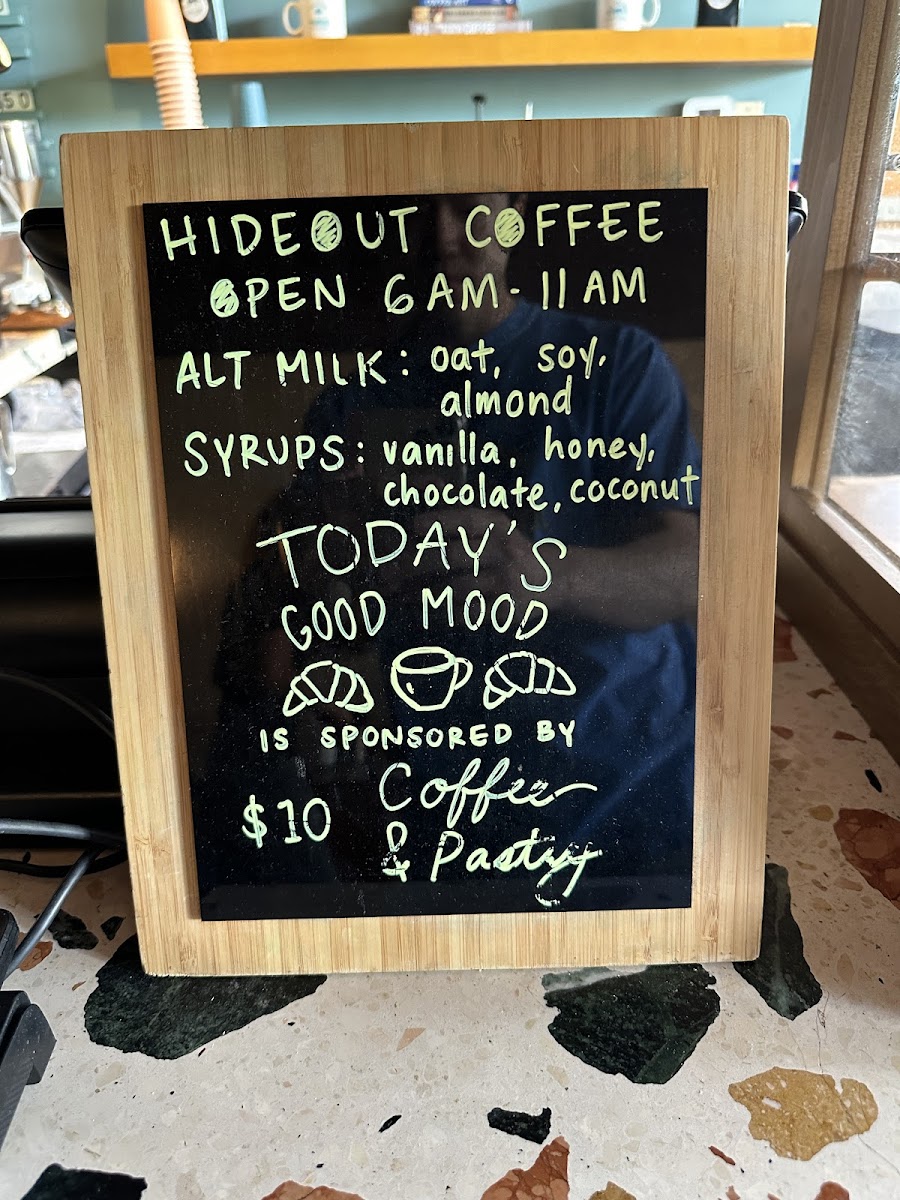 HIDEOUT COFFEE
OPEN 6 AM - 11 AM
ALT MILK: oat, soy,
almond
SYRUPS: vanilla, honey,
chocolate, coconut
TODAY'S
GOOD MOOD
IS SPONSORED BY
$10 Coffee
& Pastry